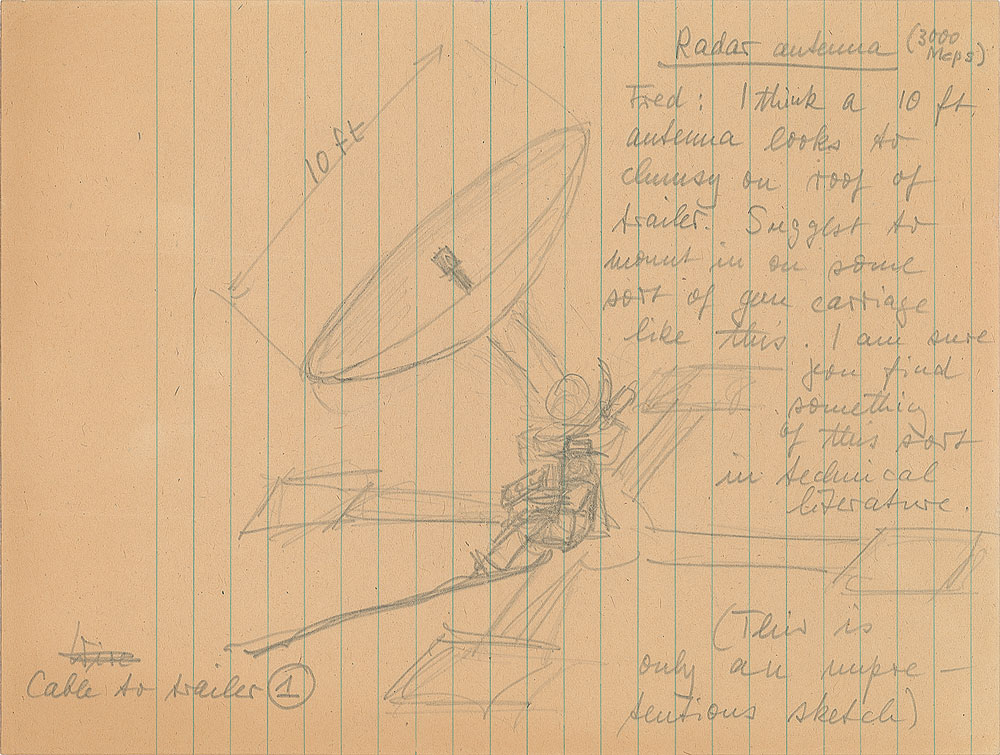 Radar antenna (3000
Mcps)
10 ft
Fred: I think a 10 ft
antenna looks to
clumsy on roof of
trailer. Suggest to
mount in on some
sort of gun carriage
like this. I am sure
you find
something
of this sort
in technical
literature.
(This is
only an unpre-
tentious sketch)
Wire
Cable to trailer 1